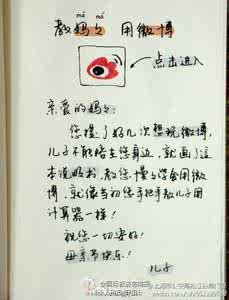 mā ma
教妈妈 用微博
点击进入
亲爱的妈妈：
您提了好几次想玩微博，
儿子不能陪在您身边，就画了这
本说明书，教您学会用微
博，就像当初您手把手教儿子用
计算器一样！
祝您一切安好！
母亲节快乐！
儿子